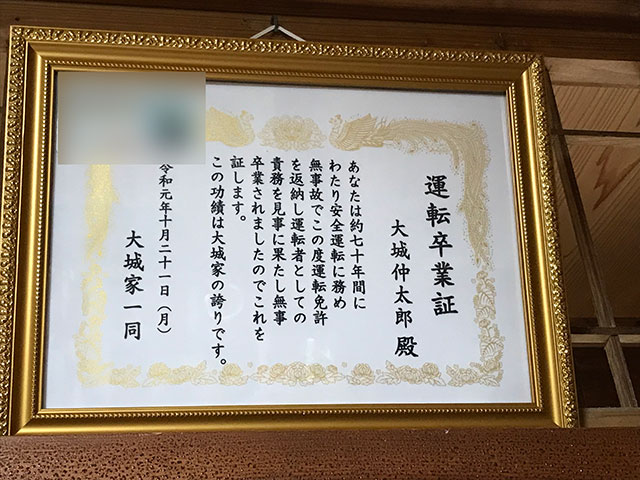 運転卒業証
大城仲太郎 殿
あなたは約七十年間に
わたり安全運転に務め
無事故でこの度運転免許
を返納し運転者としての
責務を見事に果たし無事
卒業されましたのでこれを
証します。
この功績は大城家の誇りです。
令和元年十月二十一日（月）
大城家一同